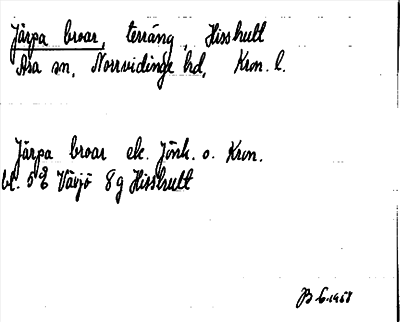 Järpa broar, terräng, Hisshult
Asa sn, Norrvidinge hd, Kron. l.
Järpa broar ek. Jönk. o. Kron.
bl. 5E Växjö 8g Hisshult
1958